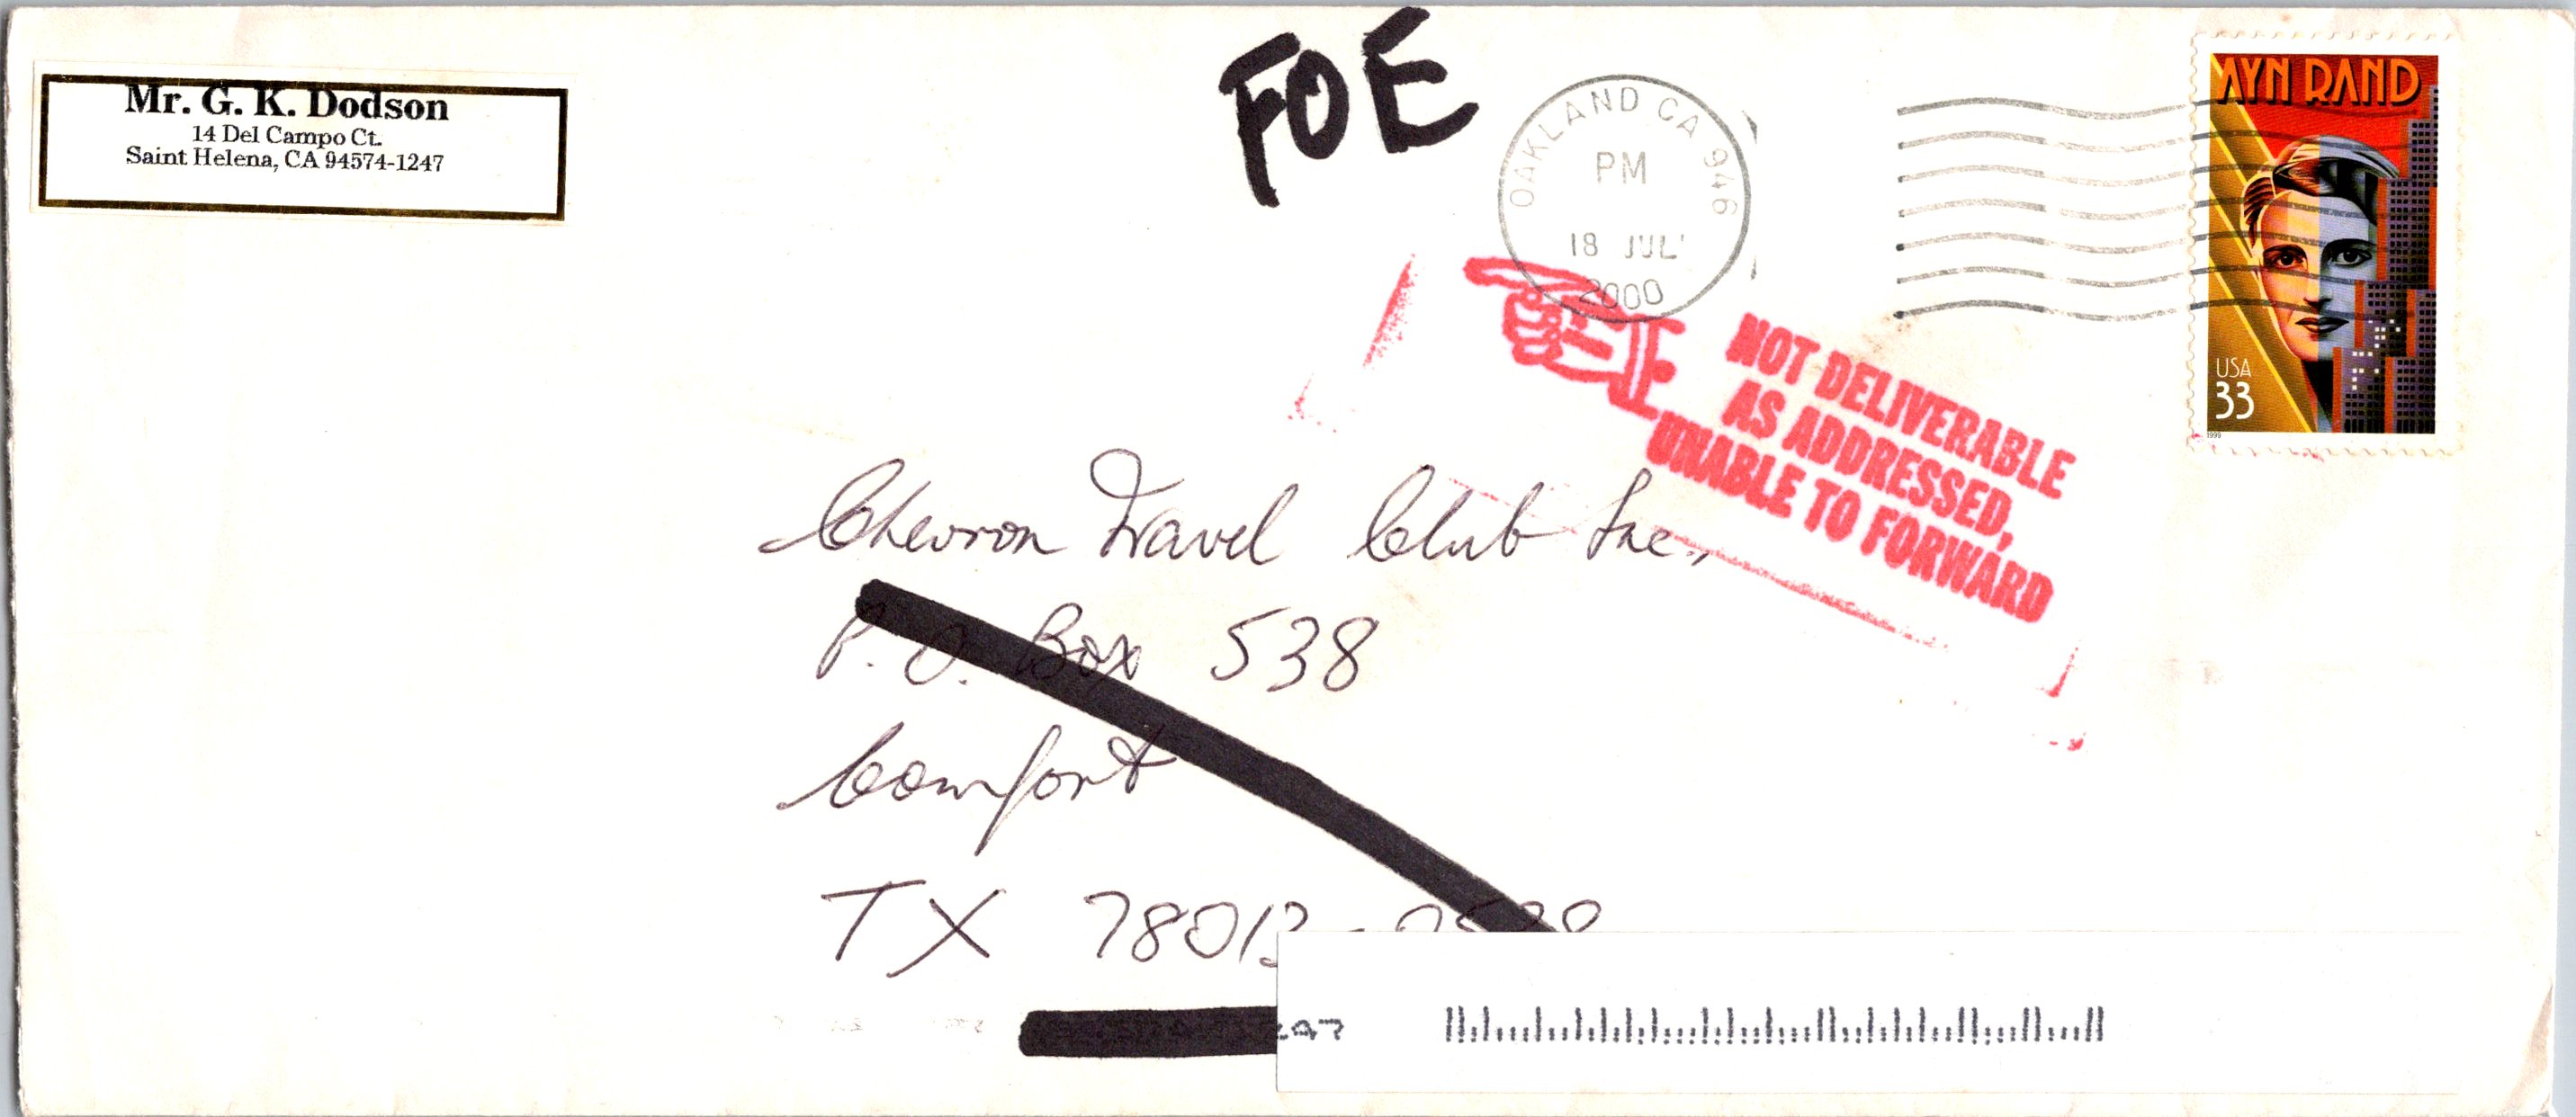 Mr. G. K. Dodson
14 Del Campo Ct.
Saint Helena, CA 94574-1247
FOE
OAKLAND CA 946
PM
18 JUL
2000
AYN RAND
USA
33
1999
NOT DELIVERABLE
AS ADDRESSED,
UNABLE TO FORWARD
Chevron Travel Club Inc.,
P.O. Box 538
Comfort
TX 78013-0538